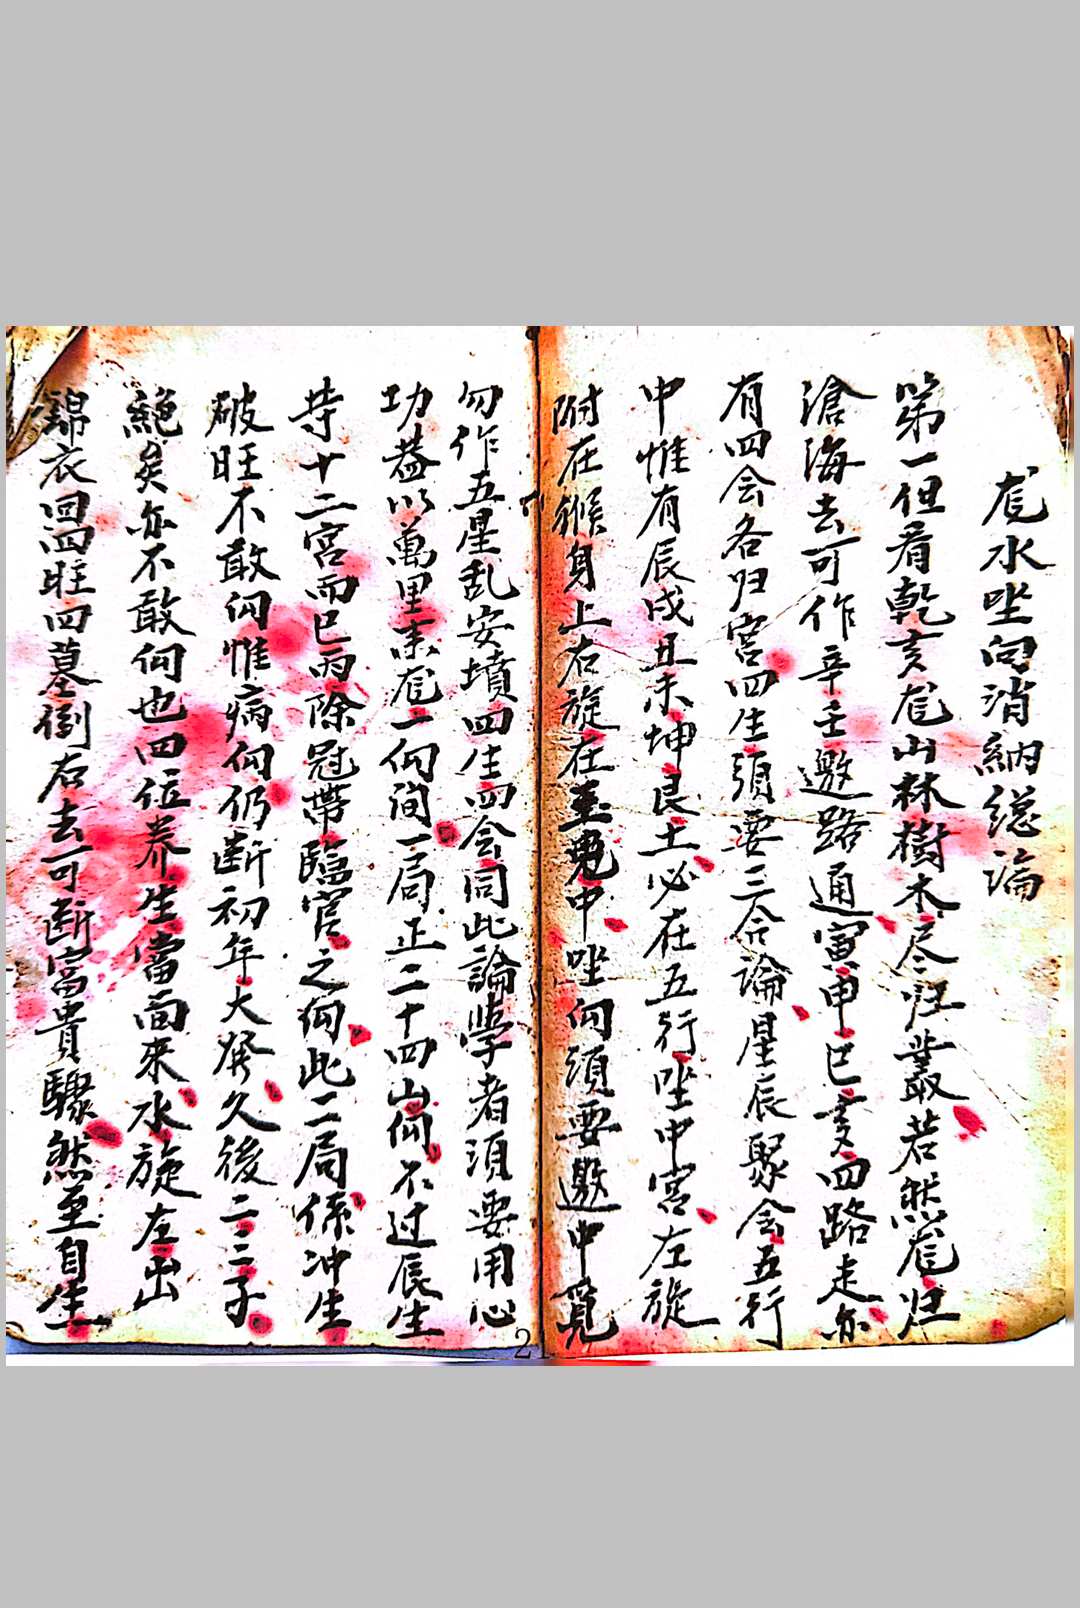 龙水坐向消納総論
第一但看乾亥龙山林樹木尽归叢若然龙归
滄海去可作辛壬邀路通寅申巳亥四路走亦
有四会各归宮四生須要三合論星辰聚会五行
中惟有辰戌丑未坤艮土必在五行坐中宮左旋
附在猴身上右旋在中坐向須要邀中覓
勿作五星乱安墳四生四会同此論学者須要用心
功葢以萬里来龙二向间一局正二十四山向不过辰生
等十二宮而已而除冠帶臨官之向此二局係冲生
破旺不敢向惟病向仍断初年大発久後二三子
絕矣亦不敢向也四位养生當面來水旋左出
錦衣回四旺四墓倒右去可断富貴驟然至自生
2